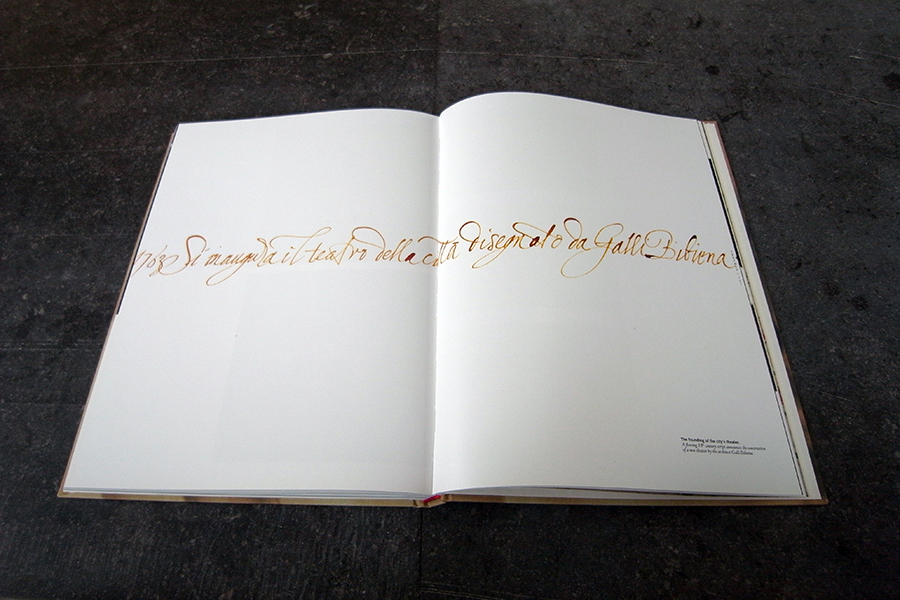 1763 Si inaugura il teatro della città disegnato da Galli Bibiena
The founding of the city's theater.
A flowing 18th century script announces the construction
of a new theater by the architect Galli Bibiena.